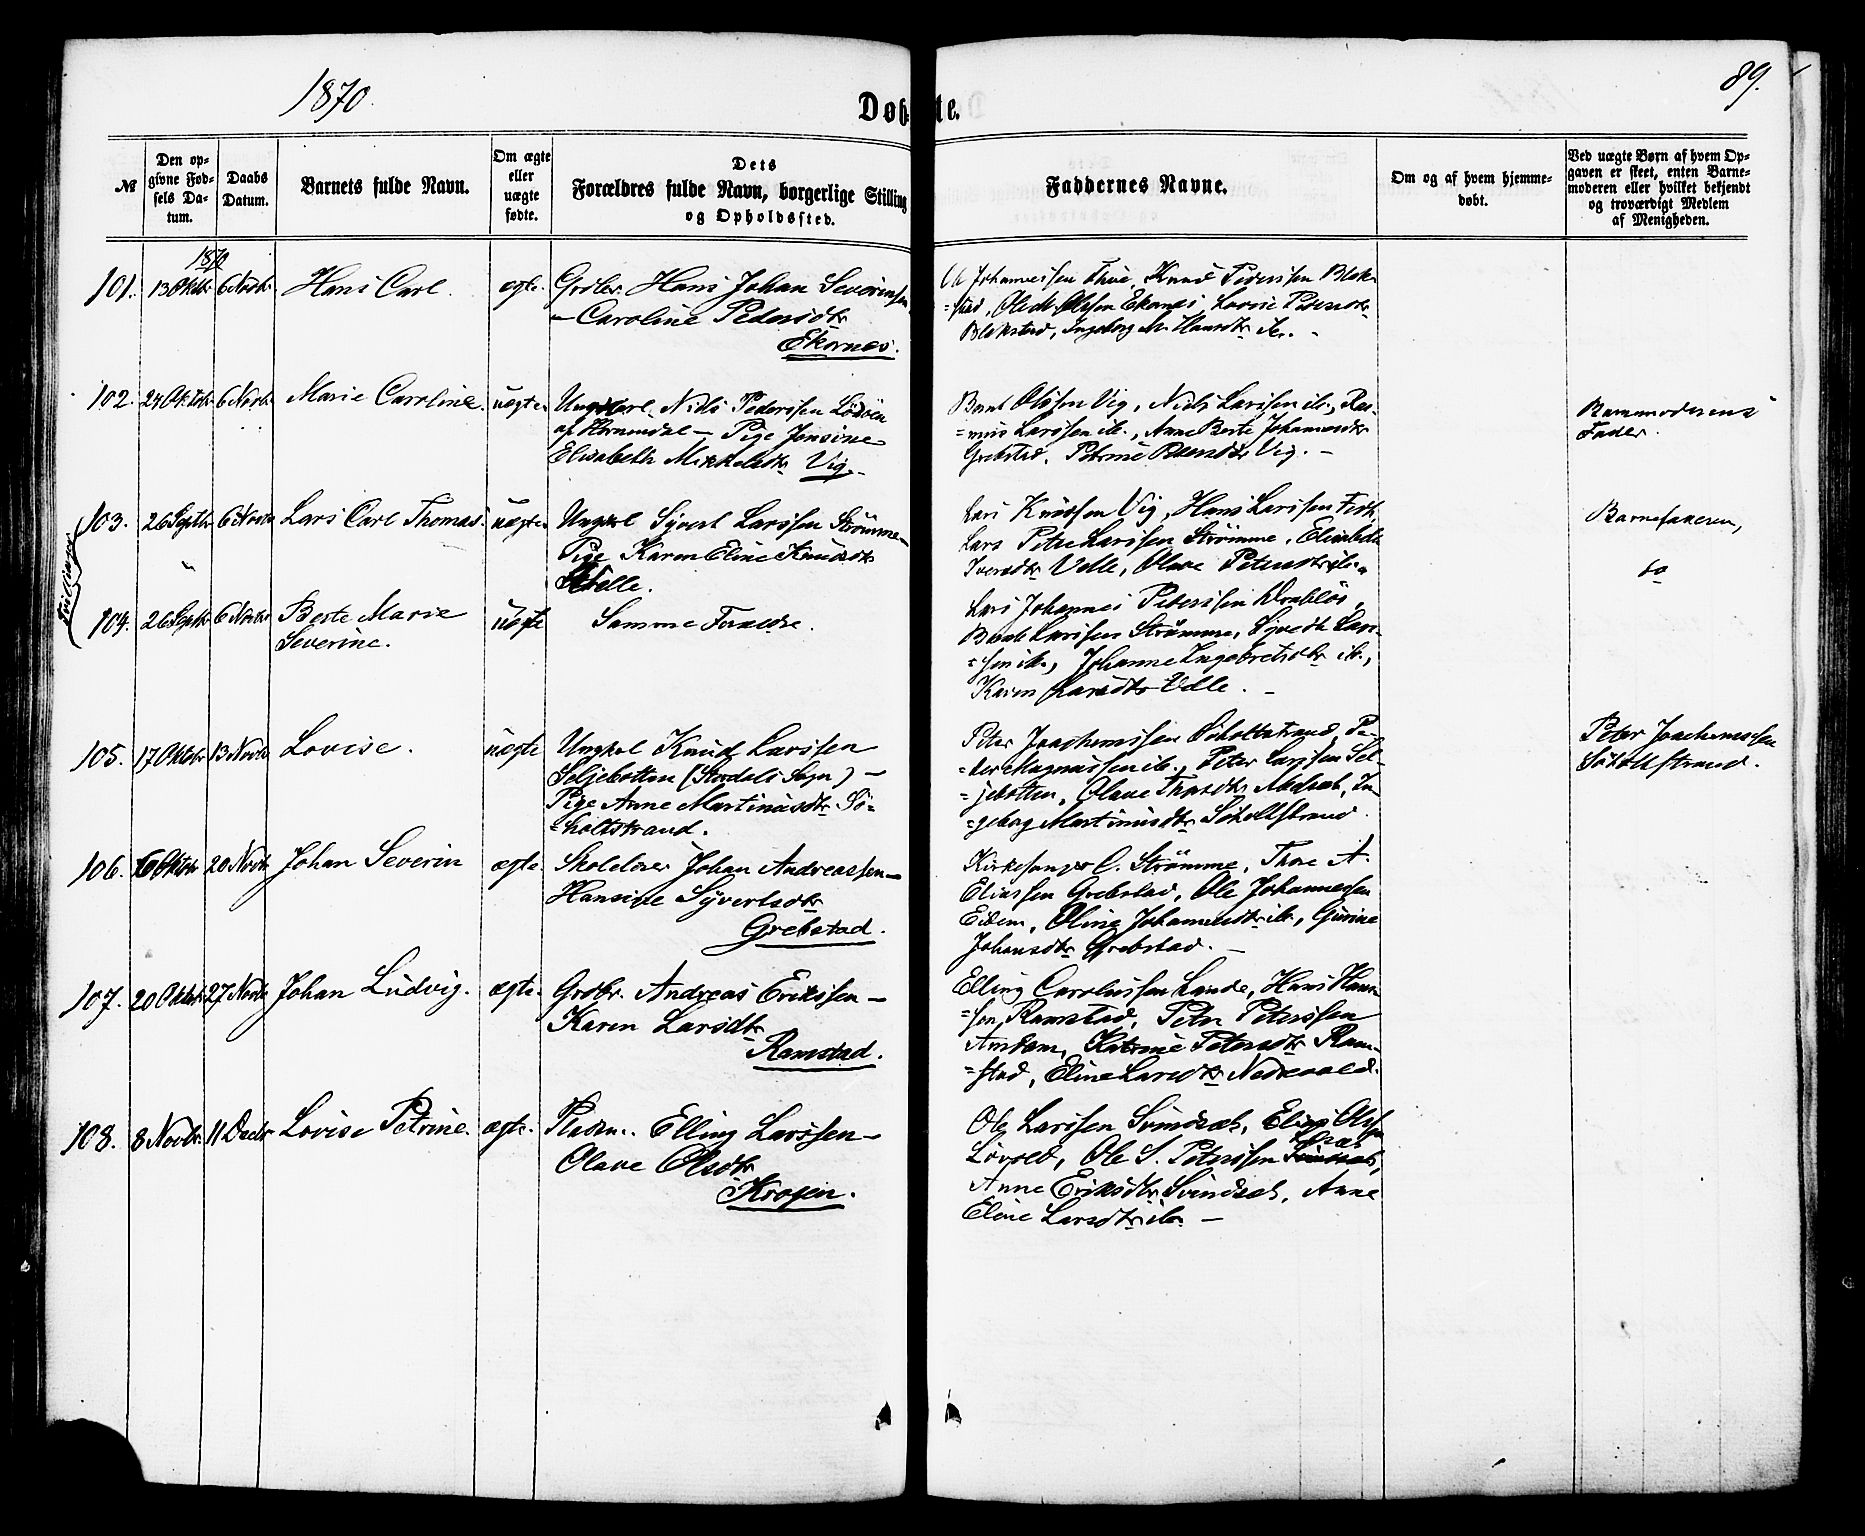 1870.
Døbte.
89.
№
Den opgivne Fødsels Datum.
Daabs Datum.
Barnets fulde Navn.
Om ægte eller uægte fødte.
Dets Forældres fulde Navn, borgerlige Stilling og Opholdssted.
Faddernes Navne.
Om og af hvem hjemmedøbt.
Ved uægte Børn af hvem Opgaven er skeet, enten Barnemoderen eller hvilket bekjendt og troværdigt Medlem af Menigheden.
1870
101. 13 Oktbr 6 Novbr Hans Carl. ægte. Grdbr. Hans Johan Severinsen
– Caroline Pedersdtr
Ekornes.
Ole Johannessen Thue, Knud Pedersen Blak-
=stad, Ole M. Olssen Ekornes, Lovise Petersdtr
Blakstad, Ingeborg M. Hansdtr ib. –
102. 24 Oktbr 6 Novbr Marie Caroline. uægte. Ungkarl. Nils Pederssen
af Hornindal – Pige Jensine
Elisabeth Mikkelsdtr Vig.
Bernt Olssen Vig, Niels Larssen ib., Ras-
=mus Larssen ib., Anne Berte Johannesdtr
Grebstad, Petrine Vig. –
Barnemoderens
Fader.
Tvillinger
103. 26 Septbr 6 Novbr Lars Carl Thomas. uægte. Ungkrl Syvert Larssen Strømme –
Pige Karen Eline Knudsdtr
Velle.
Lars Knudssen Vig, Hans Larssen
Lars Peter Larssen Strømme, Elisabeth
Iversdtr Velle, Olave Petersdtr ib. –
Barnefaderen,
do
104. 26 Septbr 6 Novbr Berte Marie
Severine.
uægte Samme Forældre.
Lars Johannes Peterssen Drabløs,
Larssen Strømme, Lars-
=sen ib., Johanne Ingebretsdtr ib.,
Karen Larsdtr Velle. –
105. 17 Oktobr 13 Novbr Lovise. uægte Ungkrl Knud Larssen
Seljebotten (Stordals Sogn) –
Pige Anne Martinusdtr Sø-
=holtstrand.
Peter Joachimssen Søholtstrand, Pe-
=der Magnussen ib., Peter Larssen Sel-
=jebotten, Olave, In-
=geborg Martinusdtr Søholtstrand.
Peter Joachimssen
Søholtstrand.
106. 6 Oktbr 20 Novbr Johan Severin ægte. Skolelærer Johan Andreassen –
Hansine Syvertsdtr
Grebstad.
Kirkesanger C. Strømme, Thore A.
Eliassen Grebstad, Ole Johannessen
Eidem, Oline Johannesdtr ib., Gurine
Johansdtr Grebstad. –
107. 20 Oktbr 27 Novbr Johan Ludvig. ægte. Grdbr. Andreas Erikssen –
Karen Larsdtr
Ramstad.
Elling Carolussen Lande, Hans Hans-
=sen Ramstad, Peter Peterssen
Amdam, Katrine Petersdtr Ram-
=stad, Eline Larsdtr Nedrevold.
108. 8 Novbr 11 Decbr Lovise Petrine. ægte. Pladsm. Elling Larssen –
Olave Olsdtr
Krogen.
Ole Larssen Svindsæt, Elias Olssen
Løvold, Ole S. Peterssen
Anne Eriksdtr Svindsæt, Anne
Eline Larsdtr ib. –